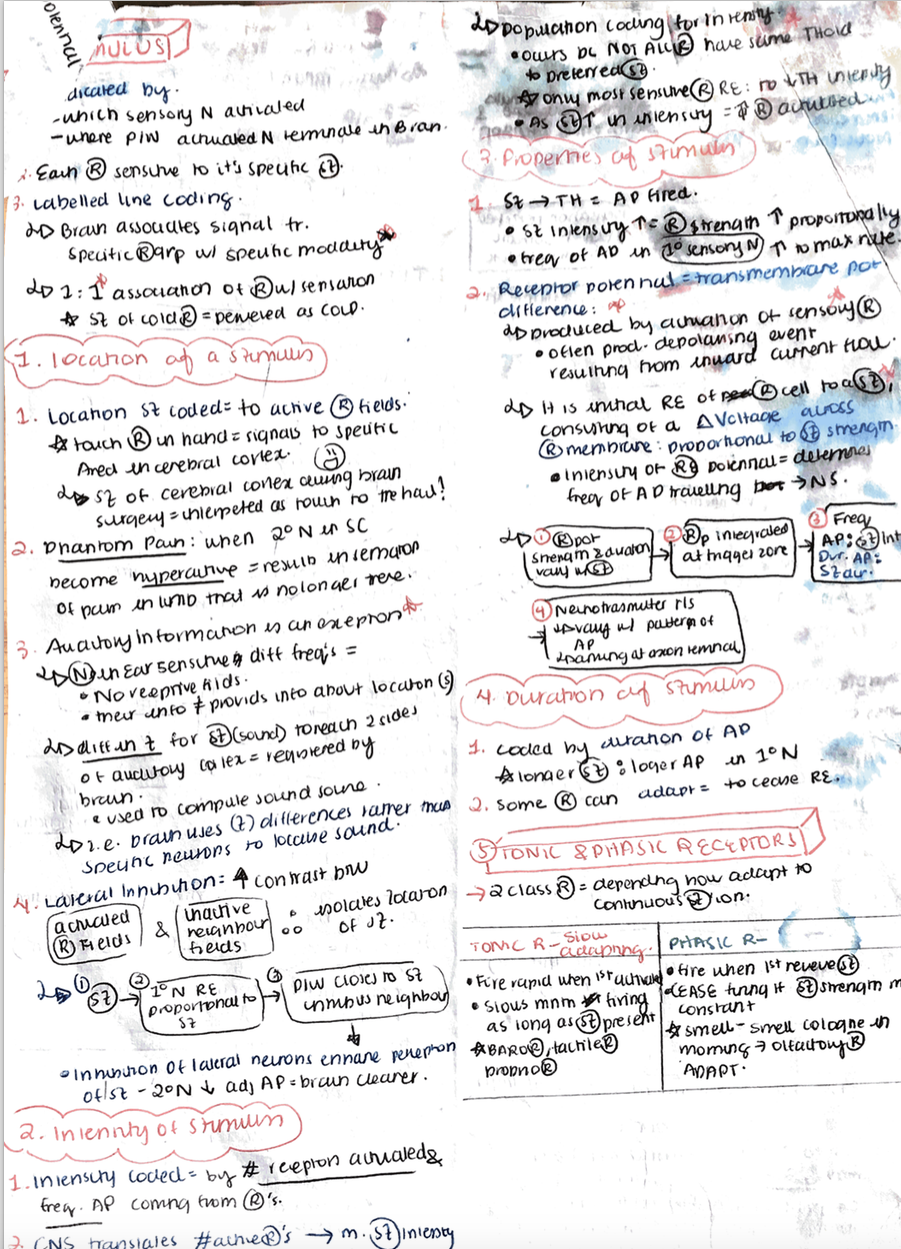 MULUS
dicated by.
- which sensory N activated
- where PIW activated N terminate in Bran.
2. Each Ⓡ sensitive to it's specific (St).
3. Labelled line coding.
Brain associates signal fr.
specific Ⓡ grp w/ specific modality*
1:1 association of Ⓡ w/ sensation
☆ St of cold Ⓡ = perieved as COLD.
1. location of a stimulus
1. Location St coded = to active Ⓡ fields.
☆ touch Ⓡ in hand = signals to specific
Area in cerebral cortex. ☺
St of cerebral cortex during brain
surgery = interpeted as touch to the hand!
2. Phantom Pain: when 2° N in SC
become hyperactive = results in sensation
of pain in limb that is no longer there.
3. Auditory information is an exeption ☆
Ⓝ in Ear sensitive diff freq's =
• No receptive fields.
• their info ≠ provids info about location (s)
diff in t for (St) (sound) to reach 2 sides
of auditory cortex = registered by
brain.
• used to compute sound
i.e. brain uses (t) differences rather than
specific neurons to localise sound.
4. Lateral Inhibition = ↑ contrast b/w
activated Ⓡ Fields & inactive neighbour fields isolates location of St.
① (St) → ② 1° N RE proportional to St → ③ PIW closes to St inhibits neighbour
• Inhibition of lateral neurons enhane perception
of St - 2° N ↓ adj AP = brain clearer.
2. Intensity of stimulus
1. Intensity coded = by # receptors activated &
freq. AP coming from Ⓡ's.
2. CNS translates # active Ⓡ's → m. (St) intensity
Population coding for intensity.
• occurs bc NOT ALL Ⓡ have same THold
to preferred (St).
☆ only most sensitive Ⓡ RE: to ↓TH intensity
• As (St) ↑ in intensity = ↑ Ⓡ activated.
3. Properties of stimulus
1. St → TH = AP fired.
• St intensity ↑ = Ⓡ strength ↑ proportionally
• freq of AP in 1° sensory N ↑ to max rate.
2. Receptor potential = transmembrane pot
difference:
produced by activation of sensory Ⓡ
• often prod. depolarising event
resulting from inward current flow.
It is initial RE of Ⓡ cell to a (St),
consisting of a ΔVoltage across
Ⓡ membrane: proportional to (St) strength
• Intensity of Ⓡ potential = determines
freq of AP travelling → NS.
① Ⓡ pot strength & duration vary w (St) → ② Ⓡp integrated at trigger zone → ③ Freq AP: (St) Int Dur. AP: St dur.
→ ④ Neurotrasmitter rls
vary w/ pattern of
AP
arriving at axon terminal
4. Duration of stimulus
1. coded by duration of AP
☆ longer (St) : loger AP in 1° N
2. some Ⓡ can adapt = to cease RE.
⑤ TONIC & PHASIC RECEPTORS
→ 2 class Ⓡ = depending how adapt to
continuous (St) ion.
TONIC R - slow adapting.
• Fire rapid when 1st activate
• slows mntn firing
as long as (St) present
☆ BARO Ⓡ, tactile Ⓡ
proprio Ⓡ
PHASIC R-
• fire when 1st receive (St)
• CEASE firing if (St) strength
constant
☆ smell - smell cologne in
morning → olfactory Ⓡ
ADAPT.